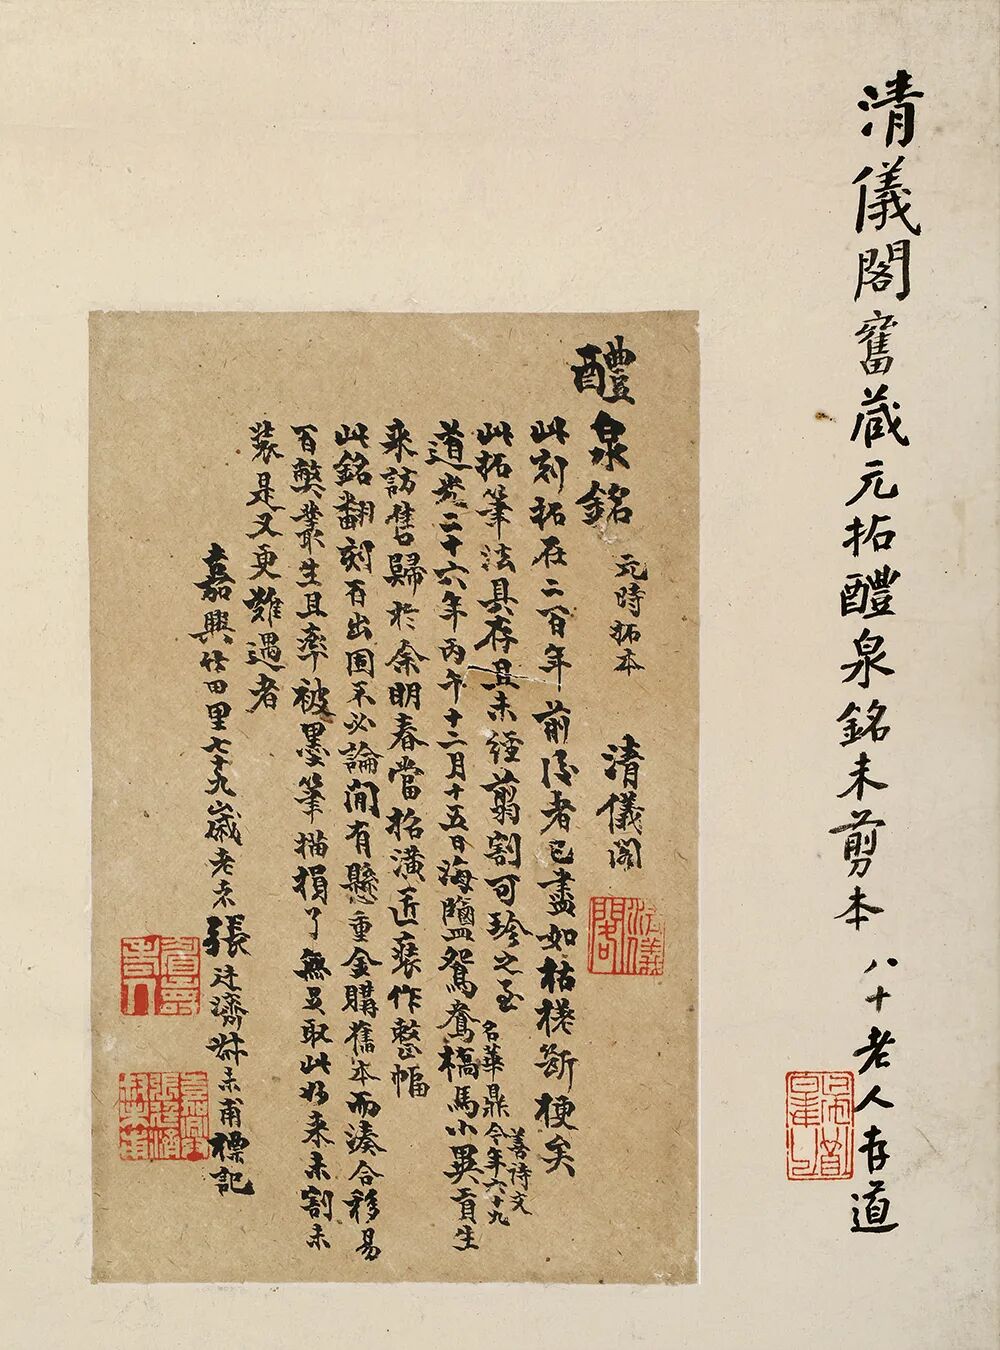 清儀閣舊藏元拓醴泉銘未剪本 八十老人存道
醴泉銘 元時拓本 清儀閣
清儀閣
此刻拓在二百年前後者已盡如枯槎斷梗矣
此拓筆法具存且未經翦割可珍之至
道光二十六年丙午十二月十五日海鹽鴛鴦槁馬小異貢生
名華鼎今年六十九
善詩文
來訪售歸於余明春當招潢匠裱作整幅
此銘翻刻百出固不必論間有懸重金購舊本而湊合移易
百弊叢生且率被墨筆描損了無足取此好來未割未
裝是又更難遇者
嘉興竹田里七十九歲老未張廷濟叔未甫標記